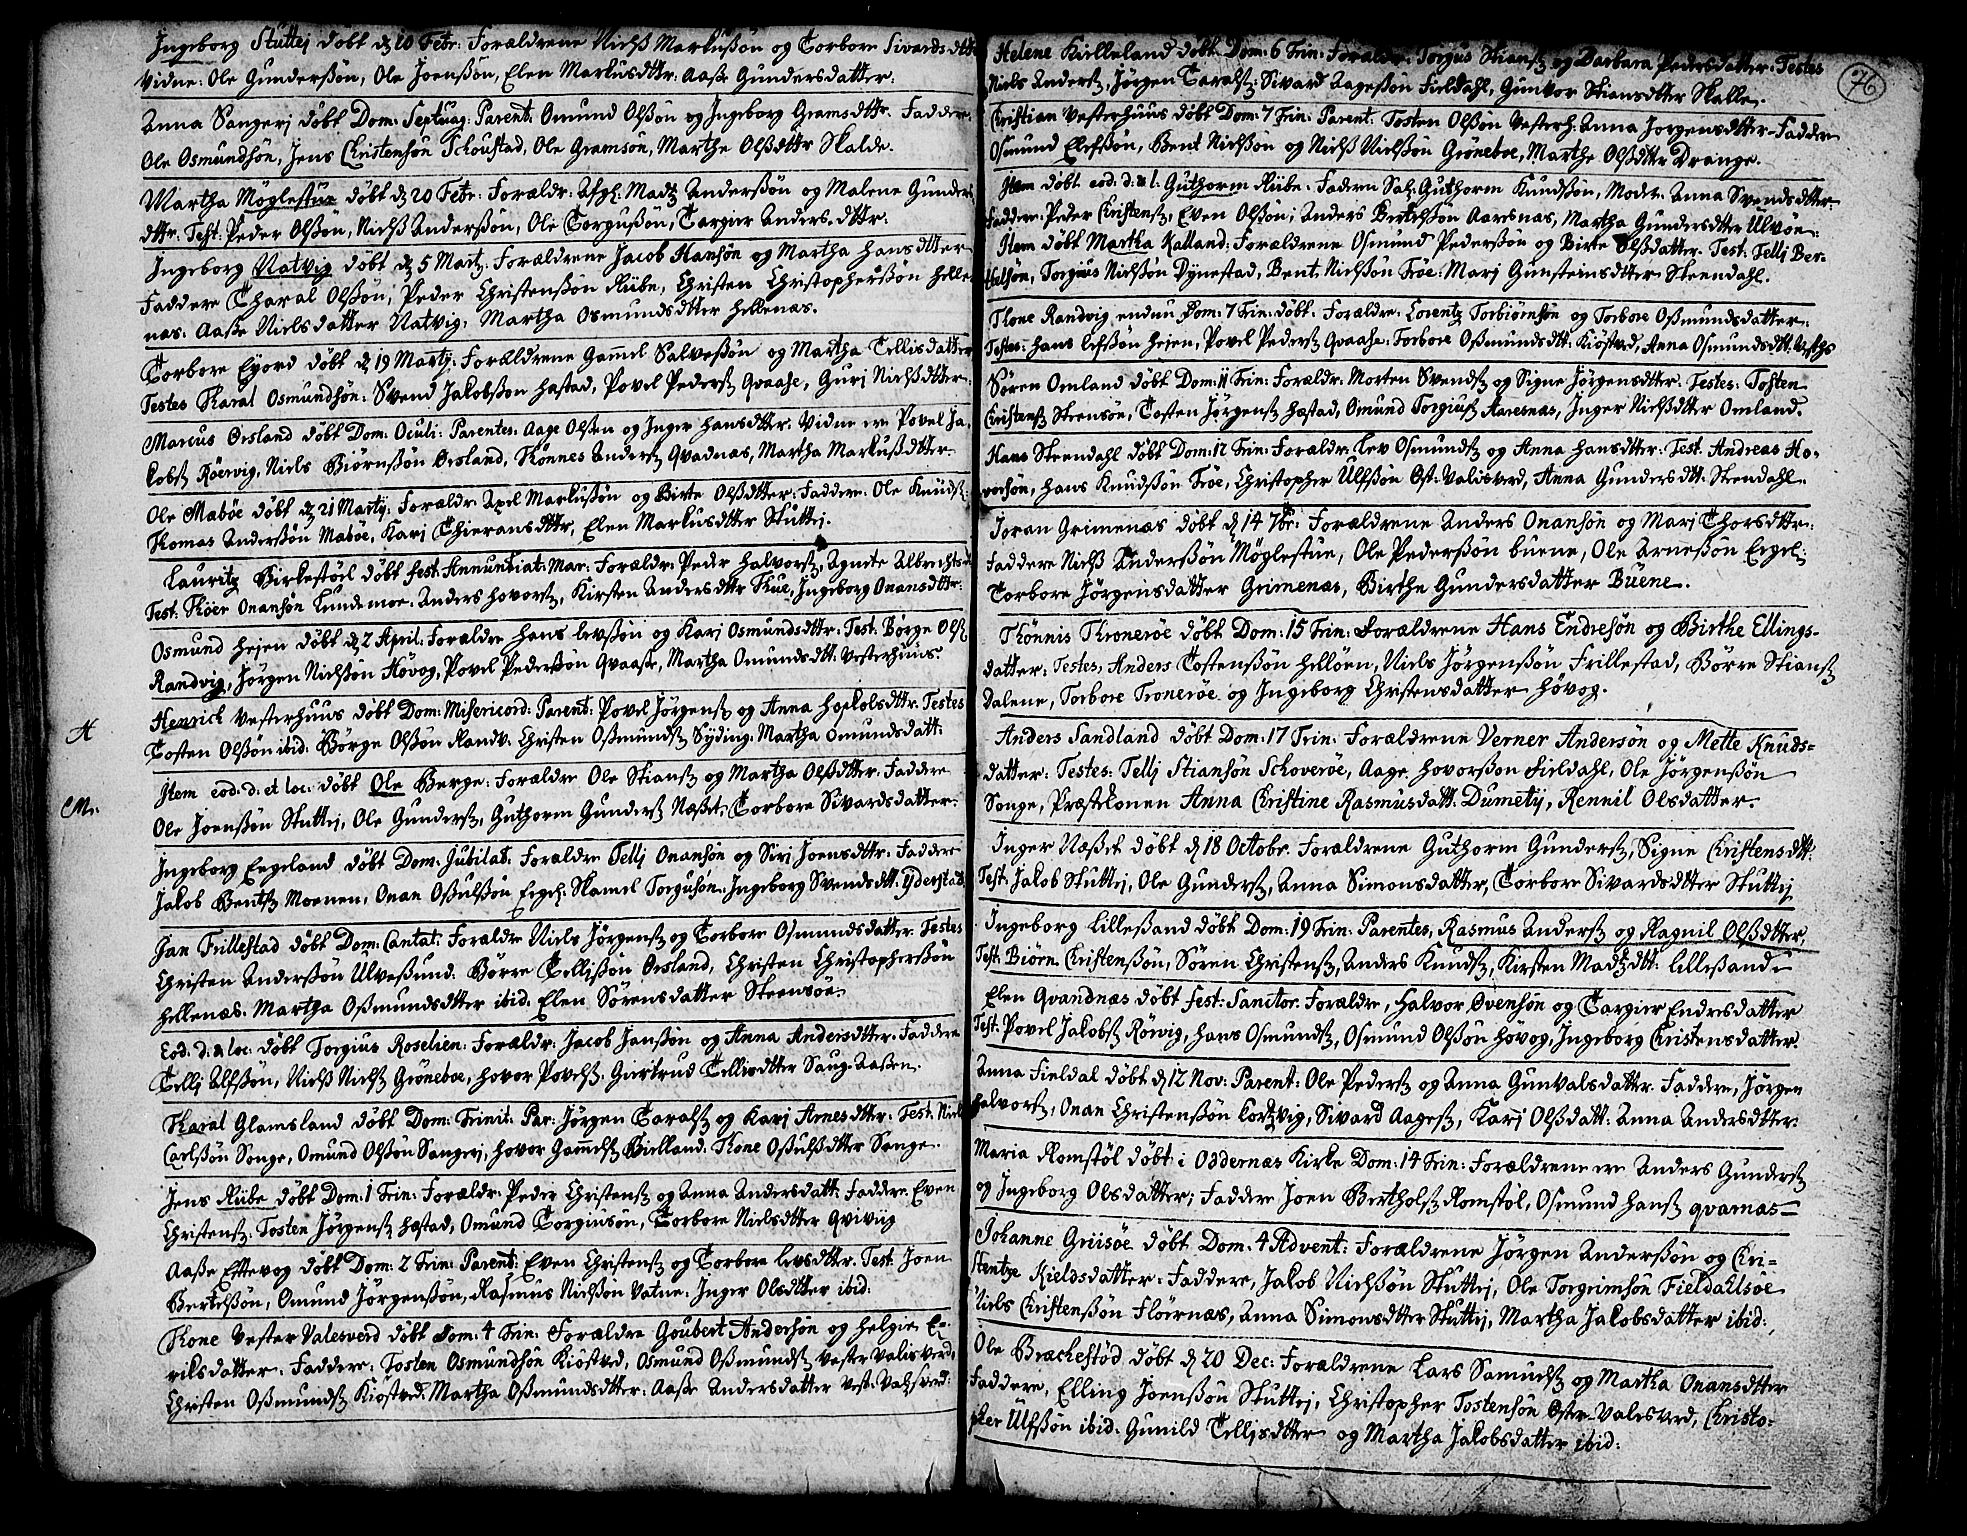 Ingeborg Stuttej døbt d. 10 Febr: Forældrene Nielß Markußøn og Torbore Sivardsdtt:
Vidne: Ole Gunderßøn, Ole Joenßøn, Elen Markusdttr: Aaße Gundersdatter.
Anna Sangerj døbt Dom: Septuag: Parent: Omund Olßøn og Ingeborg Gramsdttr. Faddere,
Ole Osmundsøn, Jens Christensøn Schoustad, Ole Gramsøn, Marthe Olßdttr Skalde.
Martha Møglestue døbt d. 20 Febr: Forældr: Afgl. Madtz Anderßøn og Malene Gunders
dttr: Test: Peder Olßøn, Nielß Anderßøn, Ole Torgußøn, Targier Anders dttr.
Ingeborg Vatvig døbt d. 5 Marty: Forældrene Jacob Hansøn og Martha Hansdtter
Faddere Tharal Olßøn, Peder Christenßøn Riibe, Christen Christopherßøn Helle-
nas: Aaße Nielsdatter Vatvig, Martha Osmundsdtter Hellenas.
Torbore Eyord døbt d. 19 Marty: Forældrene Gamel Salveßøn og Martha Tellisdatter
Testes Tharal Osmundsøn: Svend Jakobßøn Hastad, Povel Pederß Qvaase, Gurj Nielßdtter.
Marcus Ørsland døbt Dom: Oculi: Parentes: Aage Olßøn og Inger Hansdtter. Vidne er Povel Ja-
kobß Røervig, Niels Biørnßøn Ørsland, Thønnes Anderß Qvadnas, Martha Markußdtter.
Ole Mabøe døbt d. 21 Marty: Forældr: Axel Markußøn og Birte Olßdtter: Faddere: Ole Knudß:
Thomas Anderßøn Mabøe, Karj Thieransdttr, Elen Markusdtter Stuttej.
Lauritz Birkestøel døbt fest: Annuntiat: Mar: Forældr: Peder Halvorß, Agnete Albrechtsd
Test: Thøer Onansøn Lundemoe. Anders Hovorß, Kirsten Andersdttr Thue, Ingeborg Onansdttr:
Osmund Hejen døbt d. 2 April: Forældre Hans Levßøn og Karj Osmundsdttr: Test: Børge Olß
Randvig, Jørgen Nielßøn Høvog, Povel Pederßøn Qvaase, Martha Omundsdtt: Vesterhuus.
A
Henrick Vesterhuus døbt Dom: Misericord: Parent: Povel Jørgenß og Anna Hoskolsdttr. Testes
Tosten Olßøn ibid. Børge Olßøn Randv: Christen Oßmundß Syding. Martha Omundsdatt:
CM.
Item eod: d: et loc: døbt Ole Berge: Forældre Ole Stianß og Martha Olßdtter: Faddere
Ole Joenßøn Stuttej, Ole Gunderß, Guthorm Gunderß Næßet, Torbore Sivardsdatter.
Ingeborg Engeland døbt Dom: Jubilat: Forældre Tellj Onansøn og Siri Joensdttr: Faddere
Jakob Bentß Moenen, Onan Oßulßøn Ergel: Skamel Torgusøn. Ingeborg Svendsdtt: Yderstad
Jan Frillestad døbt Dom: Cantat: Forældre Niels Jørgenß og Torbore Osmundsdatter. Testes
Christen Anderßøn Ulveßund: Børre Tellißøn Ørsland, Christen Christopherßøn
Hellenæs. Martha Oßmundsdtter ibid: Elen Sørensdatter Steensøe.
Eod: d: & loc: døbt Torgius Roselien: Forældr: Jacob Janßøn og Anna Andersdtter: Faddere
Tellj Ulfßøn, Nielß Nielß Grøneboe, Hovor Povelß. Giertrud Tellisdtter Saug-Aaßen.
Tharal Glamsland døbt Dom: Trinit: Par: Jørgen Taralß og Karj Arnesdtter: Test: Niels
Carlßøn Songe, Omund Olßøn Sangerj, Hovor Gamelß Birlland: Thone Oßulßdtter Songe.
Jens Riibe døbt Dom: 1 Trin: Forældr. Peder Christenß og Anna Andersdatt: Faddere Even
Christenß. Tosten Jørgenß Hæstad, Omund Torgiusøn, Torbore Nielsdtter Qviviig
Aaße Eftevog døbt Dom: 2 Trin: Parent: Even Christenß og Torbore Levsdtter. Test: Joen
Bertelßøn, Omund Jørgensøn, Rasmus Nielßøn Vatne: Inger Olsdtter ibid:
Thone Vester Valesverd døbt Dom: 4 Trin: Forældre Goubert Andersøn og Helgie E-
rilsdatter: Faddere: Tosten Osmundsøn Kiøstved, Osmund Oßmundß Vester Valisverd,
Christen Oßmundß Kiøstved. Martha Oßmundsdtter: Aaße Andersdatter Vest: Valisverd:
76
Helene Kirlleland døbt Dom: 6 Trin: Forældr: Torgius Stianß og Barbara Pedersdatter: Testes
Niels Anderß, Jørgen Taralß: Sivard Aageßøn Fieldahl, Gunvor Stiansdtter Skalle.
Christian Vesterhuus døbt Dom: 7 Trin: Parent: Tosten Olßøn Vesterh: Anna Jorgensdtter. Faddere
Osmund Elefßøn, Bent Nielßøn og Nielß Nielßøn Grøneboe, Marthe Olßdtter Drange.
Item døbt eod: d: & l: Guthorm Riibe: Faderen Sal: Guthorm Knudßøn, Moder: Anna Svendsdtter.
Faddere: Peder Christenß, Even Olßøn, Anders Bertelßøn Aarsnas, Martha Gundersdtter Ulvøen.
Item døbt Martha Kalland: Forældrene Osmund Pederßøn og Birte Olßdatter. Test: Tellj Ber-
thelsøn, Torgius Nielßøn Dynestad, Bent Nielßøn Trøe: Marj Gunsteinsdtter Steendahl.
Thone Randvig endnu Dom: 7 Trin: døbt. Forældre: Lorentz Torbiørnsøn og Torbore Oßmundsdatter.
Testes: Hans Lefßøn Hejen, Povel Pederß Qvaase: Torbore Oßmundsdtt: Kiøstved, Anna Osmundsdtt:
Søren Omland døbt Dom: 11 Trin: Forældr: Morten Svendß og Signe Jørgensdtter. Testes: Tosten
Christenß Steensøe, Tosten Jørgenß Hæstad, Omund Torgiuß Aaresnas, Inger Nielßdtter Omland.
Hans Steendahl døbt Dom: 12 Trin: Forældr: Lev Osmundß og Anna Hansdtter: Test: Andreas Ho-
vorsøn, Hans Knudßøn Trøe, Christopher Ulfßøn Øst: Valisverd, Anna Gundersdtt: Stendahl.
Joran Grimenas døbt d. 14 7br: Forældrene Anders Onansøn og Marj Thorsdttr:
Faddere Nielß Anderßøn Møglestue, Ole Pederßøn buene, Ole Arneßøn Ergel:
Torbore Jørgensdatter Grimenas, Birthe Gundersdatter Buene.
Thønnis Thronerøe døbt Dom: 15 Trin: Forældrene Hans Endresøn og Birthe Ellings-
datter: Testes, Anders Tostenßøn Helløen, Niels Jørgenßøn Frillestad, Børre Stianß
Dalene, Torbore Tronerøe og Ingeborg Christensdatter Høvog.
Anders Sandland døbt Dom: 17 Trin: Forældrene Verner Andersøn og Mette Knuds-
datter: Testes: Tellj Stiansøn Schoverøe, Aage Hovorßøn Fieldahl, Ole Jørgenßøn
Songe, Præstekonen Anna Christine Rasmusdatt: Dumetij, Rennil Olsdatter.
Inger Næßet døbt d. 18 Octobr: Forældrene Guthorm Gunderß, Signe Christensdtt:
Test: Jakob Stuttej, Ole Gunderß, Anna Simonsdatter, Torbore Sivardsdtter Stuttej
Ingeborg Lilleßand døbt Dom: 19 Trin: Parentes, Rasmus Anderß og Ragnil Olßdtter,
Test: Biørn Christenßøn, Søren Christenß, Anders Knudß, Kirsten Madtzdtt: Lilleßand.
Elen Qvandnæs døbt fest: Sanctor: Forældre, Halvor Ovensøn og Targier Endresdatter
Test: Povel Jakobß Rørvig, Hans Osmundß, Osmund Olßøn Høvog, Ingeborg Christensdatter.
Anna Fieldal døbt d. 12 Nov: Parent: Ole Pederß og Anna Gunvalsdatter. Faddere, Jørgen
Halvorß, Onan Christenßøn Cortzvig, Sivard Aageß, Karj Olßdatt: Anna Andersdtter.
Maria Romstøl døbt i Oddernæs Kirke Dom: 14 Trin: Forældrene ere Anders Gunderß
og Ingeborg Olsdatter; Faddere Joen Bertholß Romstøl, Osmund Hanß qvarnas
Johanne Griisøe døbt Dom: 4 Advent: Forældrene Jørgen Anderßøn og Chri-
stentze Kieldsdatter: Faddere, Jakob Nielßøn Stuttej, Ole Torgrimsøn Fieldallsøe
Niels Christenßøn Flørnæs, Anna Simonsdtter Stuttej, Martha Jakobsdatter ibid:
Ole Brachestød døbt d. 20 Dec: Forældrene Lars Samuelß og Martha Onansdtter
Faddere, Elling Joenßøn Stuttej, Christopher Tostensøn Øster-Valesverd, Christo-
pher Ulfßøn ibid: Gunild Tellisdtter og Martha Jakobsdatter ibid: